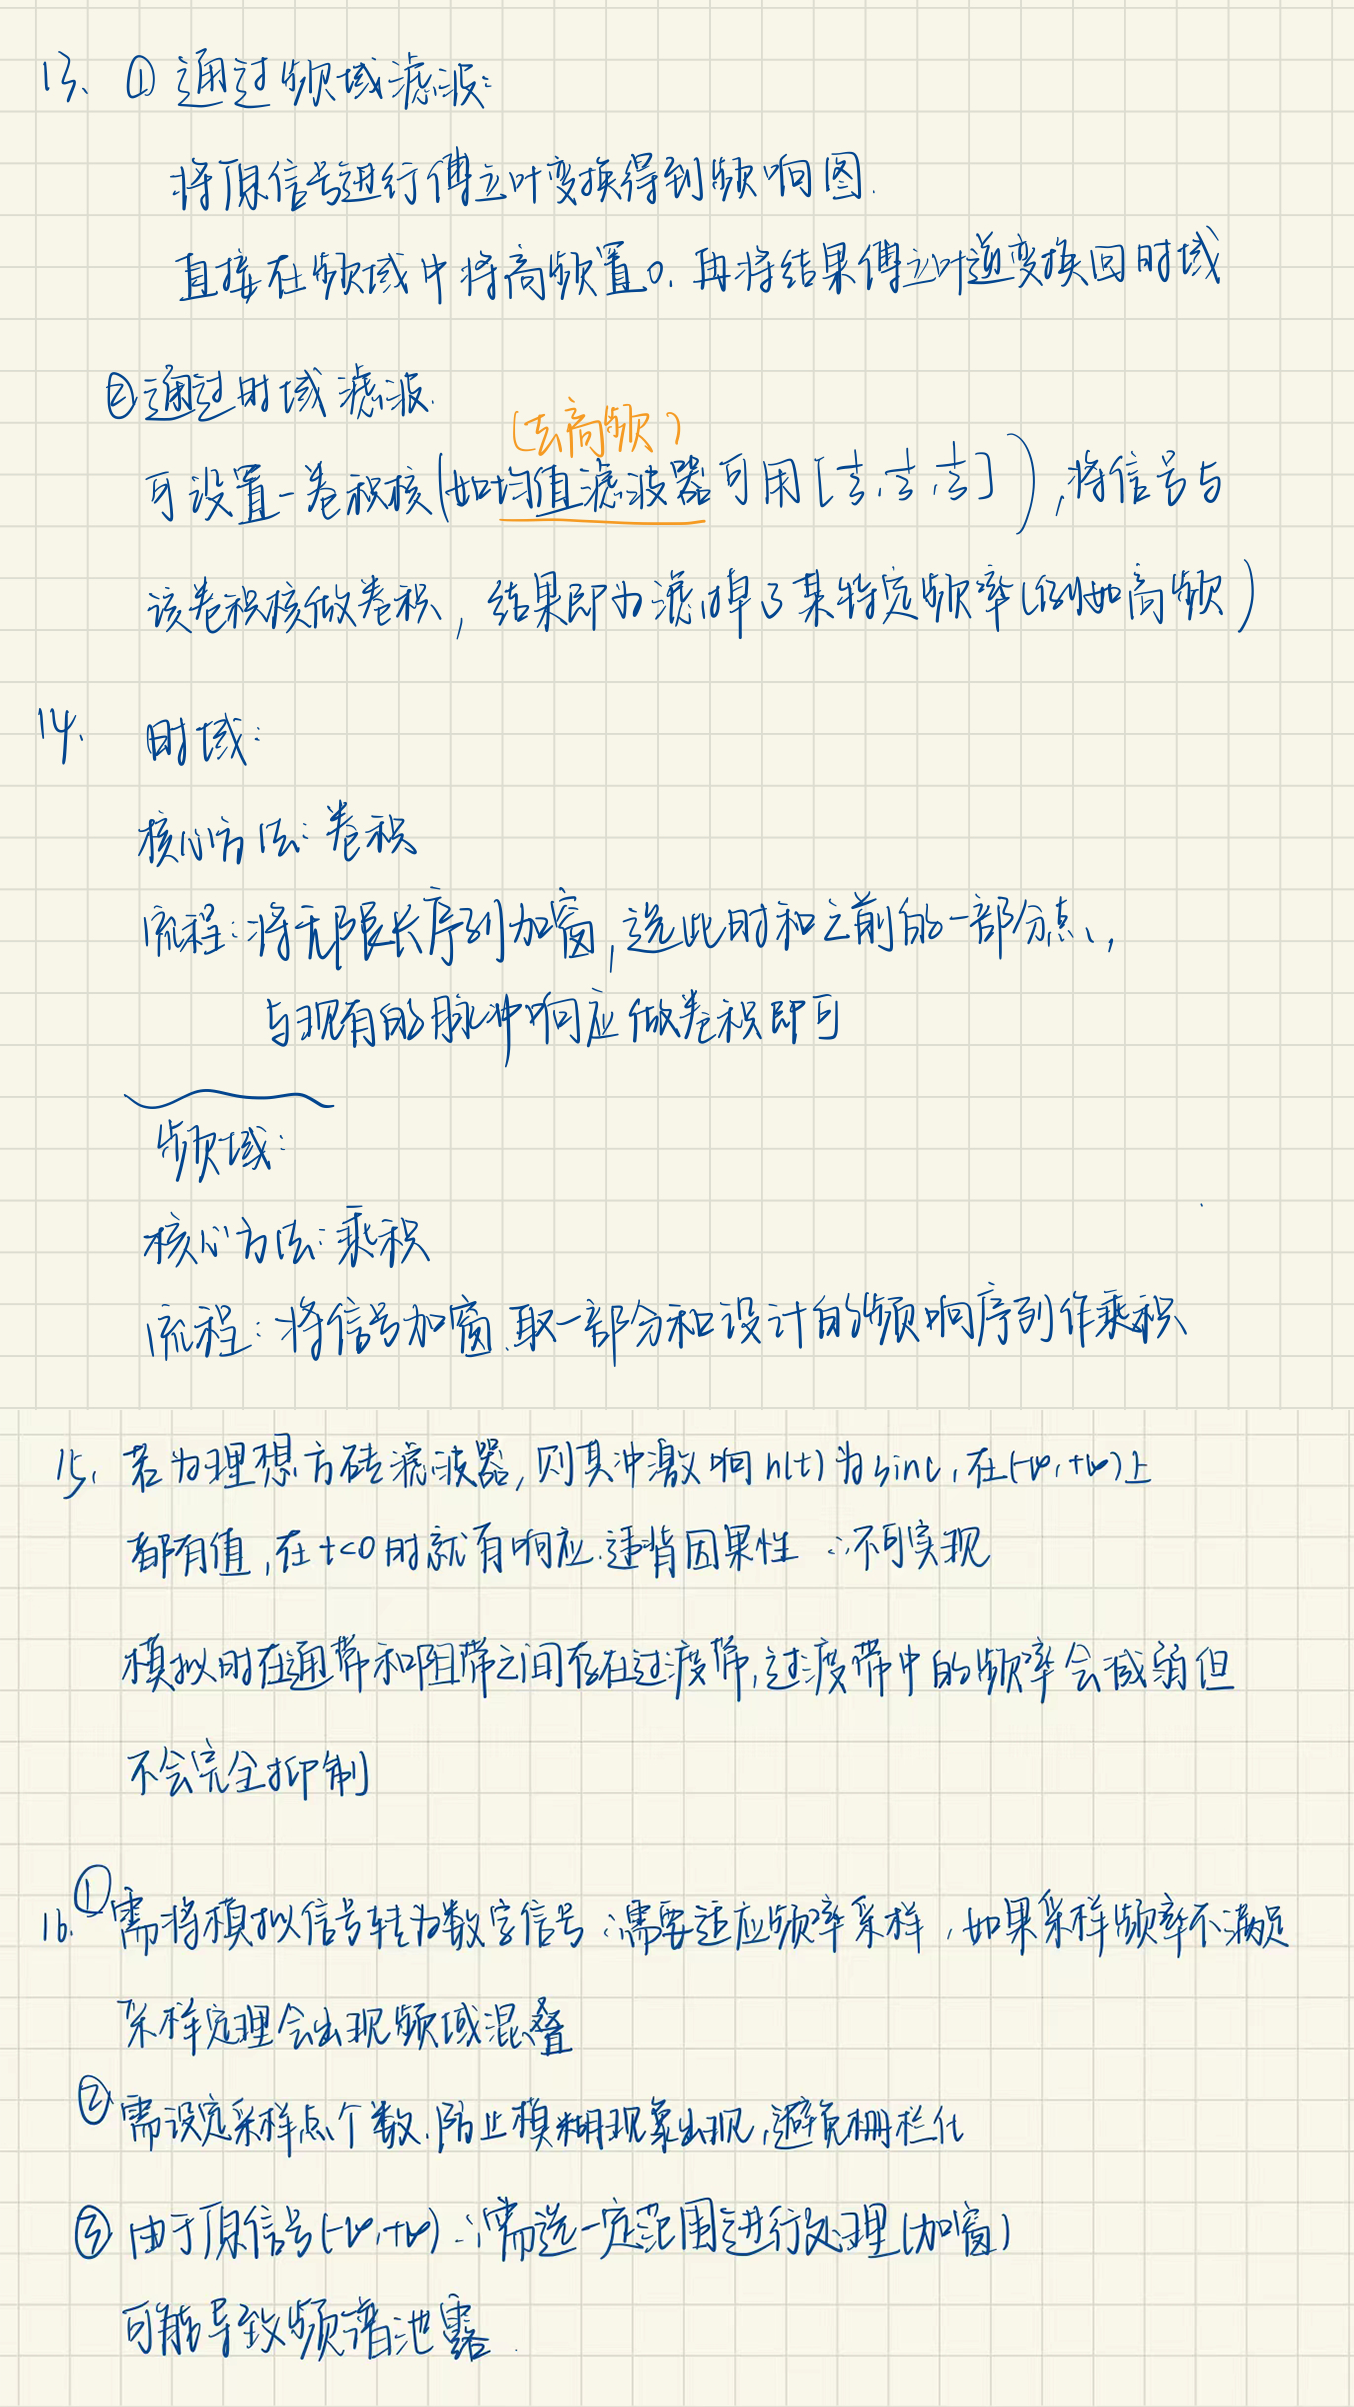 13、① 通过频域滤波:
将原信号进行傅立叶变换得到频响图.
直接在频域中将高频置0,再将结果傅立叶逆变换回时域
②通过时域滤波.
(去高频)
可设置一卷积核(如均值滤波器可用[⅓,⅓,⅓]),将信号与
该卷积核做卷积,结果即为滤掉了某特定频率(例如高频)
14. 时域:
核心方法:卷积
流程:将无限长序列加窗,选此时和之前的一部分点,
与现有的脉冲响应做卷积即可
频域:
核心方法:乘积
流程:将信号加窗.取一部分和设计的频响序列作乘积
15. 若为理想方砖滤波器,则其冲激响h(t)为sinc,在(-∞,+∞)上
都有值,在t<0时就有响应.违背因果性 ∴不可实现
模拟时在通带和阻带之间存在过渡带,过渡带中的频率会减弱但
不会完全抑制
16. ①需将模拟信号转为数字信号∴需要适应频率采样,如果采样频率不满足
采样定理会出现频域混叠
②需设定采样点个数.防止模糊现象出现,避免栅栏化
③ 由于原信号(-∞,+∞)∴需选一定范围进行处理(加窗)
可能导致频谱泄露.